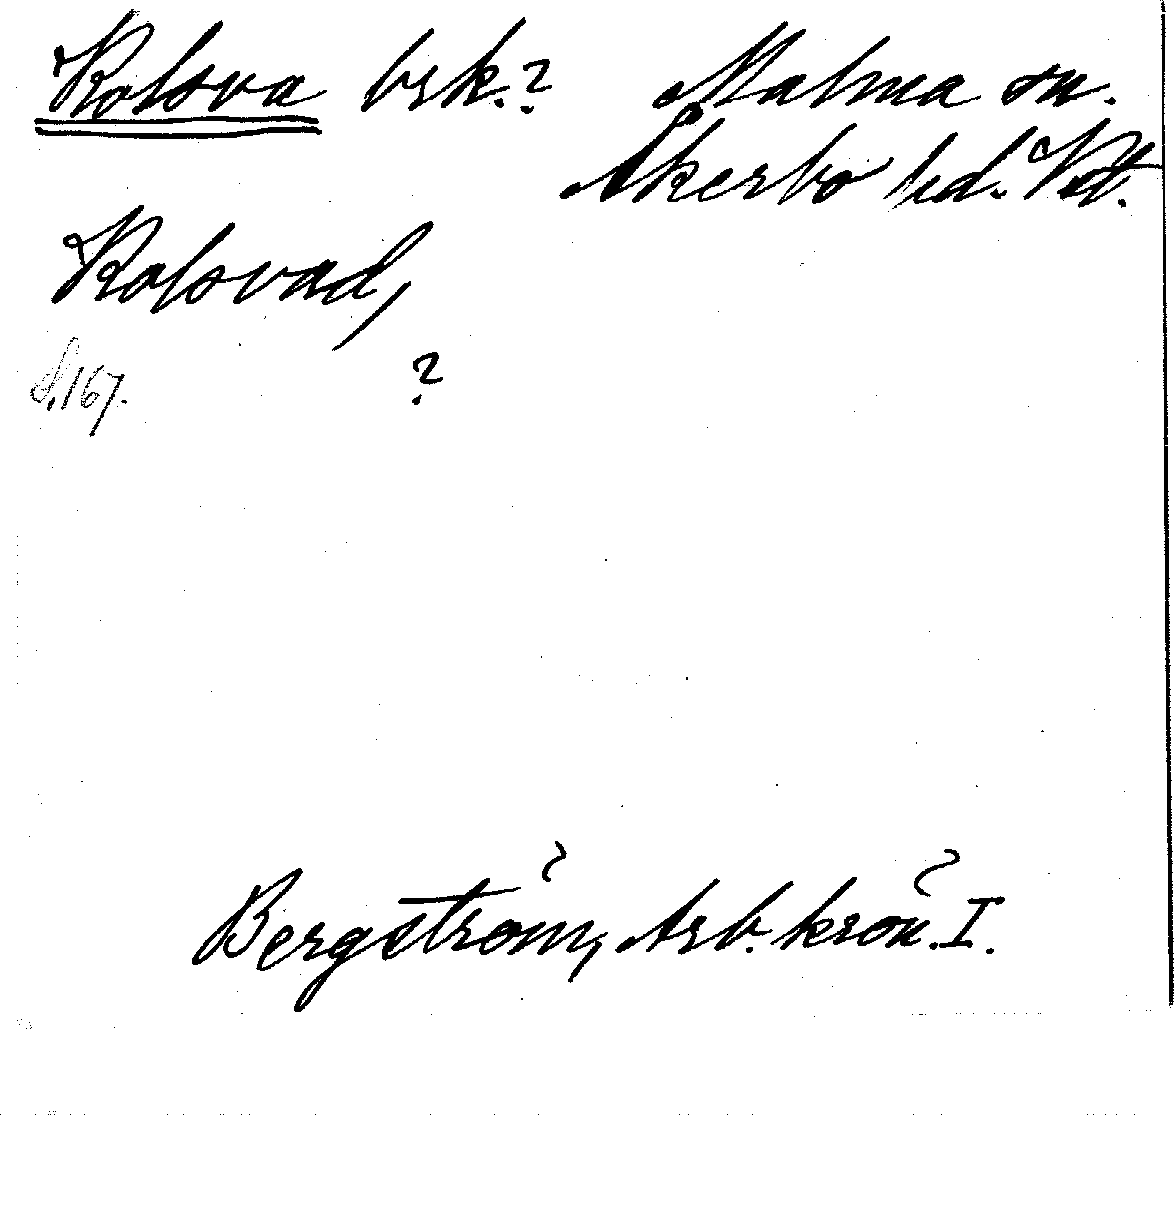 Kolsva brk.? Malma sn.
Åkerbo hd. Vstl.
Kolsvad,
?
S. 167.
Bergström, Arb. krön. I.